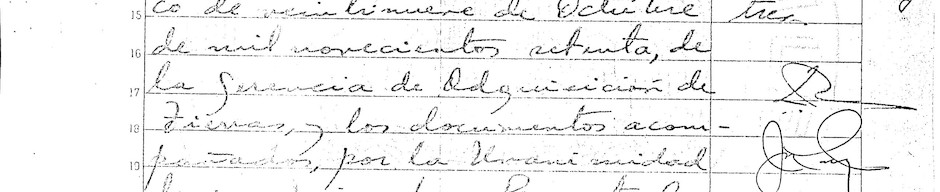 15 co de veintinueve de Octubre tres
16 de mil novecientos setenta, de
17 la Gerencia de Adquisición de
18 Tierras, y los documentos acom-
19 pañados, por la Unanimidad